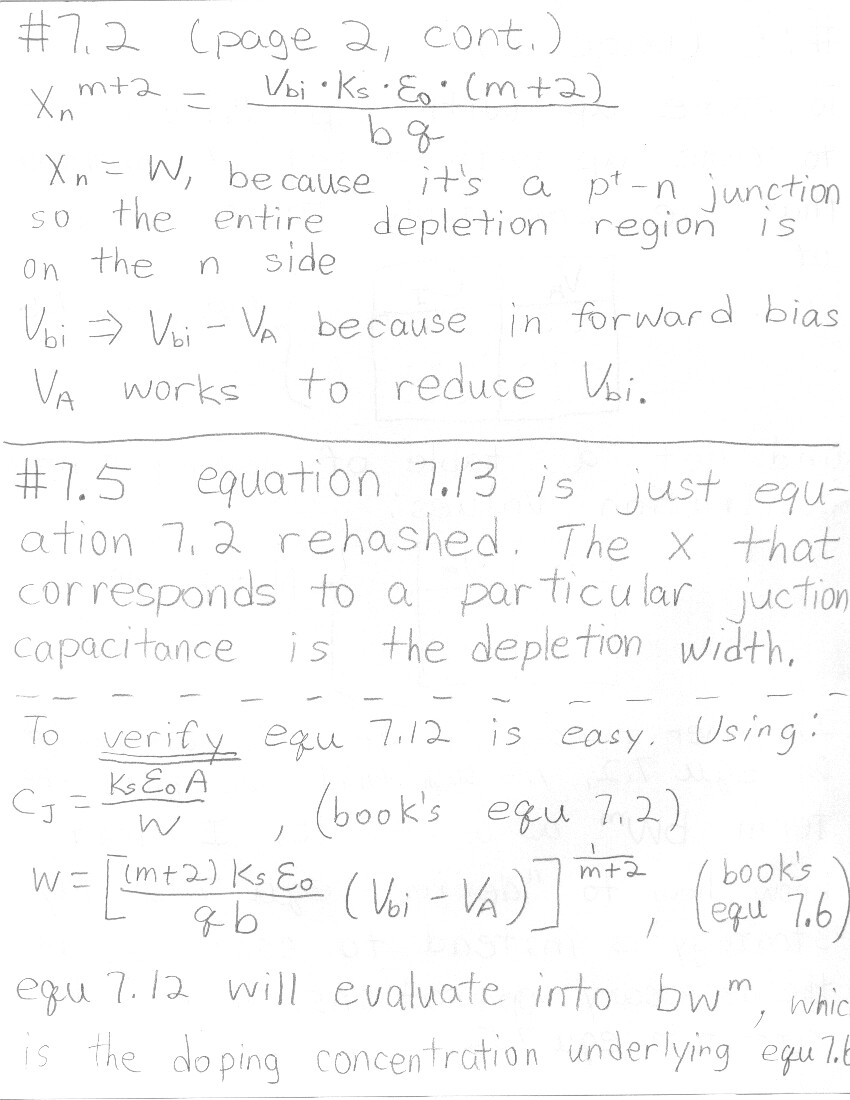 #7.2 (page 2, cont.)
Xₙᵐ⁺² = (Vbi · Ks · ε₀ · (m+2)) / (b q)
Xₙ = W, because it's a p⁺-n junction
so the entire depletion region is
on the n side
Vbi ⇒ Vbi - VA because in forward bias
VA works to reduce Vbi.
#7.5 equation 7.13 is just equ-
ation 7.2 rehashed. The x that
corresponds to a particular juction
capacitance is the depletion width.
To verify equ 7.12 is easy. Using:
CJ = (Ks ε₀ A) / W , (book's equ 7.2)
W = [ ((m+2) Ks ε₀) / (q b) (Vbi - VA) ]^(1/(m+2)) , (book's equ 7.6)
equ 7.12 will evaluate into bWᵐ, whic
is the doping concentration underlying equ 7.6